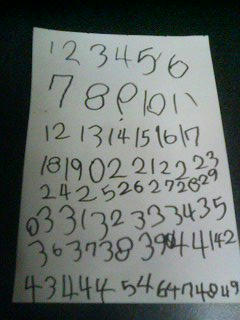 12 3 4 5 6
7 8 9 10 11
12 13 14 15 16 17
18 19 02 21 22 23
24 25 26 27 28 29
03 31 32 33 34 35
36 37 38 39 04 41 42
43 44 54 64 74 84 9